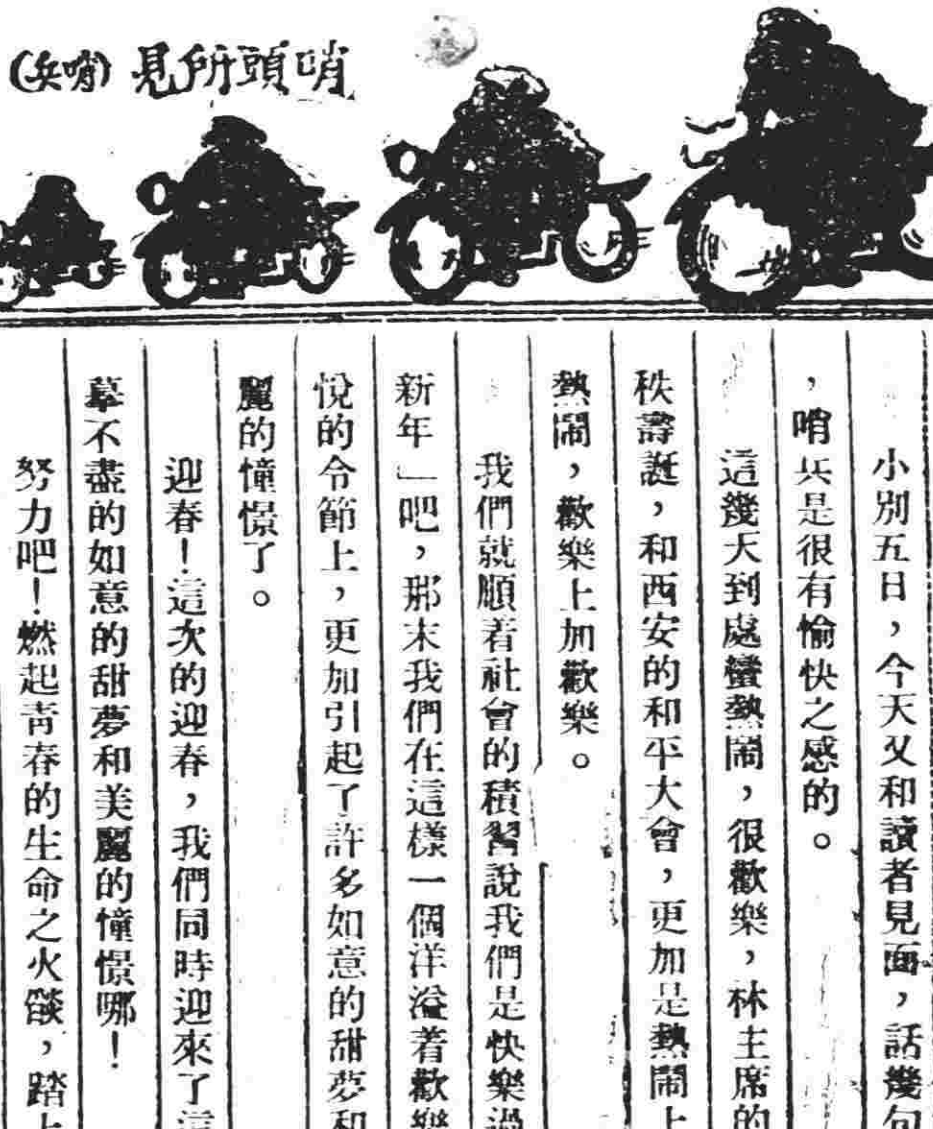 哨頭所見(哨兵)
小別五日，今天又和讀者見面，話幾句
，哨兵是很有愉快之感的。
這幾天到處蠻熱鬧，很歡樂，林主席的
秩壽誕，和西安的和平大會，更加是熱鬧上
熱鬧，歡樂上加歡樂。
我們就順着社會的積習說我們是快樂過
新年」吧，那末我們在這樣一個洋溢着歡樂
悅的令節上，更加引起了許多如意的甜夢和
麗的憧憬了。
迎春！這次的迎春，我們同時迎來了這
摹不盡的如意的甜夢和美麗的憧憬哪！
努力吧！燃起青春的生命之火燄，踏上